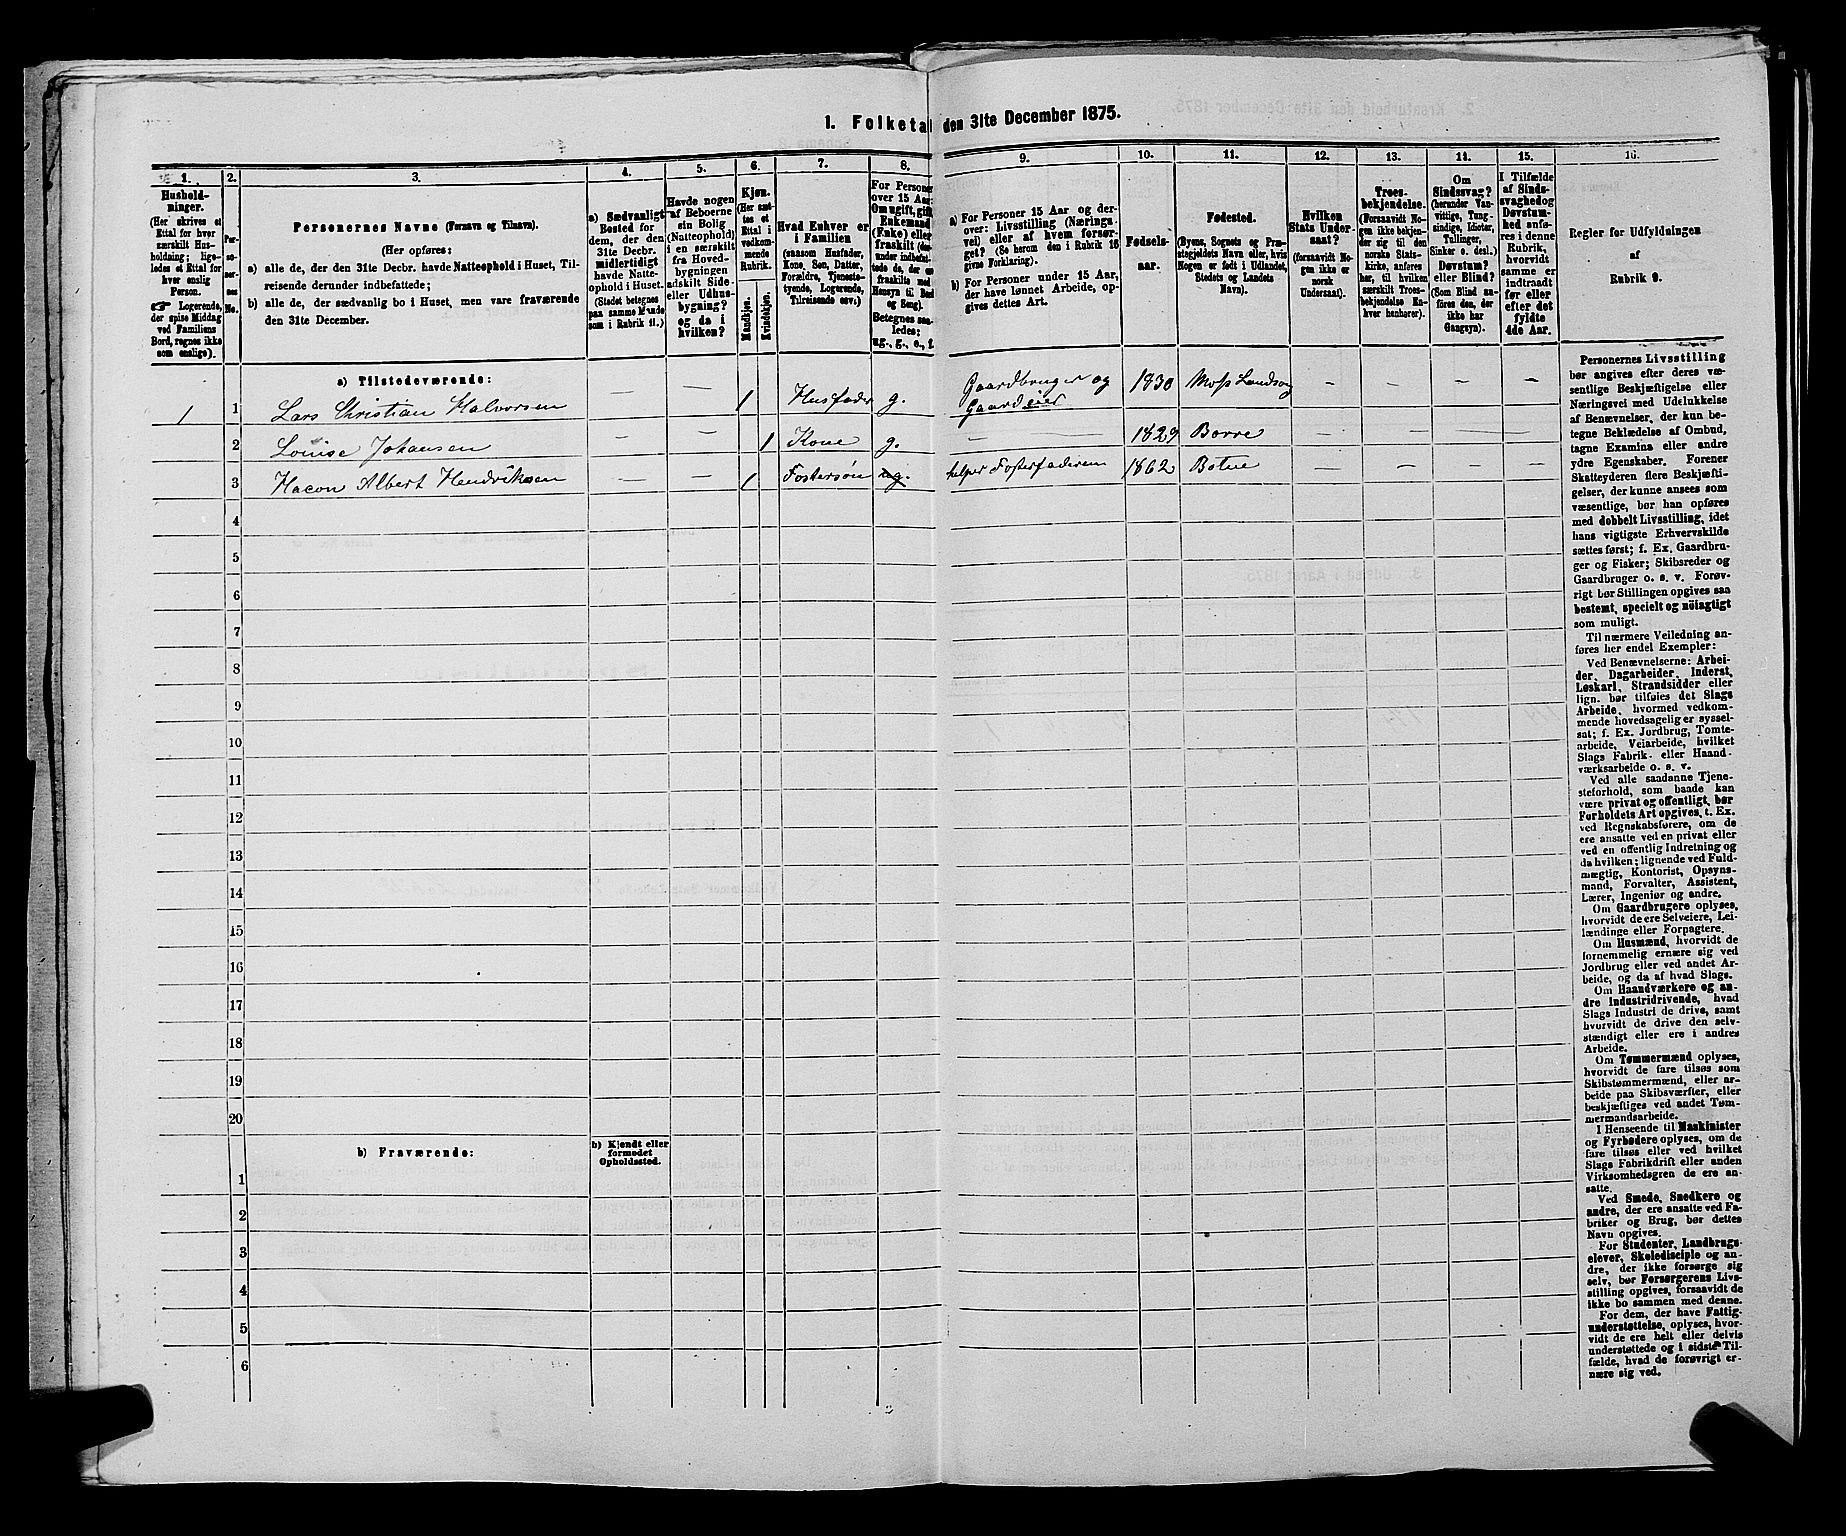 1. Folketal den 31te December 1875.
1.
2.
3.
4.
5.
6.
7.
8.
9.
10.
11.
12.
13.
14.
15.
16.
Hushold-
ninger.
(Her skrives et
Ettal for hver
særskilt Hus-
holdning; lige-
ledes et Ettal for
hver enslig
Person.
☞ Logerende,
der spise Middag
ved Familiens
Bord, regnes ikke
som enslige).
Per-
so-
ner-
nes
No.
Personernes Navne (Fornavn og Tilnavn).
(Her opføres:
a) alle de, der den 31te Decbr. havde Natteophold i Huset, Til-
reisende derunder indbefattede;
b) alle de, der sædvanlig bo i Huset, men vare fraværende
den 31te December.
a) Sædvanligt
Bosted for
dem, der den
31te Decbr.
midlertidigt
havde Natte-
ophold i Huset.
(Stedet betegnes
paa samme Maade
som i Rubrik 11.)
Havde nogen
af Beboerne
sin Bolig
(Natteophold)
i en særskilt
fra Hoved-
bygningen
adskilt Side-
eller Udhus-
bygning?
og da i
hvilken?
Kjøn.
(Her sæt-
tes et
Ettal i
vedkom-
mende
Rubrik.
Mandkjøn.
Kvindekjøn.
Hvad Enhver er
i Familien
(saasom Husfader,
Kone, Søn, Datter,
Forældre, Tjeneste-
tyende, Logerende,
Tilreisende osv.)
For Personer
over 15 Aar:
Om ugift, gift,
Enkemand
(Enke) eller
fraskilt (der-
under indbefat-
tede de, der ere
fraskilte med
Hensyn til Bord
og Seng).
Betegnes saa-
ledes:
ug., g., e., f.
a) For Personer 15 Aar og der-
over: Livsstilling (Nærings-
vei) eller af hvem forsør-
get? (Se herom den i Rubrik 16
givne Forklaring).
b) For Personer under 15 Aar,
der have lønnet Arbeide, op-
gives dettes Art.
Fødsels-
aar.
Fødested.
(Byens, Sognets og Præ-
stegjeldets Navn eller, hvis
Nogen er født i Udlandet,
Stedets og Landets
Navn).
Hvilken
Stats Under-
saat?
(forsaavidt No-
gen ikke er
norsk
Undersaat).
Troes-
bekjendelse.
(Forsaavidt No-
gen ikke bekjen-
der sig til den
norske Stats-
kirke, anføres
her, til hvilken
særskilt Troes-
bekjendelse En-
hver henhører).
Om
Sindssvag?
(herunder Van-
vittige, Tung-
sindige, Idioter,
Tullinger,
Sinker o. desl.)
Døvstum?
eller Blind?
(Som Blind an-
føres den, der
ikke har
Gangsyn).
I Tilfælde
af Sinds-
svaghed og
Døvstum-
hed anfø-
res i denne
Rubrik,
hvorvidt
samme er
indtraadt
før eller
efter det
fyldte
4de Aar.
Regler for Udfyldningen
af
Rubrik 9.
a) Tilstedeværende:
1 1 Lars Christian Halvorsen — — 1 Husfader g. Gaardbruger og Gaardeier 1830 Moss Landsogn — — — —
2 Louise Johansen — — 1 Kone g. — — 1829 Borre — — — —
3 Hacon Albert Hendriksen — — 1 Fostersøn ug. helper Fosterfaderen 1862 Botne — — — —
4
5
6
7
8
9
10
11
12
13
14
15
16
17
18
19
20
b) Fraværende:
b) Kjendt eller
formodet
Opholdssted.
1
2
3
4
5
6
Personernes Livsstilling
bør angives efter deres væ-
sentlige Beskjæftigelse eller
Næringsvei med Udelukkelse
af Benævnelser, der kun be-
tegne Beklædelse af Ombud,
tagne Examina eller andre
ydre Egenskaber. Forener
Skatteyderen flere Beskjæfti-
gelser, der kunne ansees som
væsentlige, bør han opføres
med dobbelt Livsstilling, idet
hans vigtigste Erhvervskilde
sættes først; f. Ex. Gaardbru-
ger og Fisker; Skibsreder og
Gaardbruger o. s. v. Forøv-
rigt bør Stillingen opgives saa
bestemt, specielt og nöiagtigt
som muligt.
Til nærmere Veiledning an-
føres her endel Exempler:
Ved Benævnelserne: Arbei-
der, Dagarbeider, Inderst,
Løskarl, Strandsidder eller
lign. bør tilføies det Slags
Arbeide, hvormed vedkom-
mende hovedsagelig er syssel-
sat; f. Ex. Jordbrug, Tomte-
arbeide, Veiarbeide, hvilket
Slags Fabrik- eller Haand-
værksarbeide o. s. v.
Ved alle saadanne Tjene-
steforhold, som baade kan
være privat og offentligt, bør
Forholdets Art opgives, t. Ex.
ved Regnskabsførere, om de
ere ansatte ved en privat eller
ved en offentlig Indretning og
da hvilken; lignende ved Fuld-
mægtig, Kontorist, Opsyns-
mand, Forvalter, Assistent,
Lærer, Ingeniør og andre.
Om Gaardbrugere oplyses,
hvorvidt de ere Selveiere, Lei-
lændinge eller Forpagtere.
Om Husmænd, hvorvidt de
fornemmelig ernære sig ved
Jordbrug eller ved andet Ar-
beide, og da af hvad Slags.
Om Haandværkere og an-
dre Industridrivende, hvad
Slags Industri de drive, samt
hvorvidt de drive den selv-
stændigt eller ere i andres
Arbeide.
Om Tømmermænd oplyses,
hvorvidt de fare tilsøs som
Skibstømmermænd, eller ar-
beide paa Skibsværfter, eller
beskjæftiges ved andet Tøm-
mermandsarbeide.
I Henseende til Maskinister
og Fyrbødere oplyses, om de
fare tilsøs eller ved hvilket
Slags Fabrikdrift eller anden
Virksomhedsgren de ere an-
satte.
Ved Smede, Snedkere og
andre, der ere ansatte ved Fa-
briker og Brug, bør dettes
Navn opgives.
For Studenter, Landbrugs-
elever, Skoledisciple og an-
dre, der ikke forsørge sig
selv, bør Forsørgerens Livs-
stilling opgives, forsaavidt de
ikke bo sammen med denne.
For dem, der have Fattig-
understøttelse, oplyses, hvor-
vidt de ere helt eller delvis
understøttede og i sidste Til-
fælde, hvad de forøvrigt er-
nære sig ved.